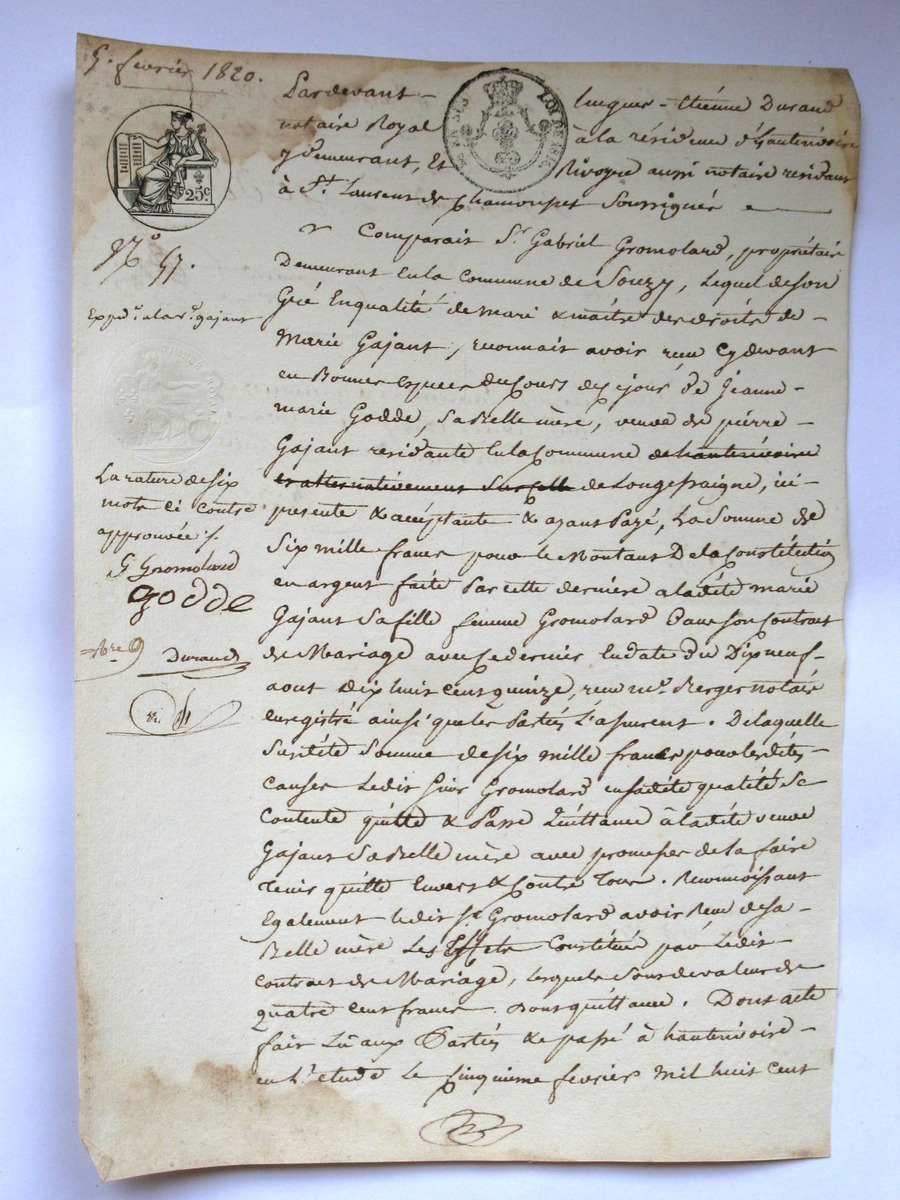 5. fevrier 1820.
25c
N° 57.
Expd.° a la v.e gajant
La rature de six
mots ci contre
approuvée ./.
G Gromolard
godde
Durand
Pardevant - hugues - Etiénne Durand
notaire Royal à la résidence d'hauterivoire
y demeurant, Et Rivoyre aussi notaire residant
à St. Laurent de Chamousset Soussignés
Comparait Sr. Gabriel Gromolard, propriétaire
Demeurant En la Commune de Souzy, Lequel de son
Gré Enqualité de mari & maitre des droits de -
Marie Gajant, reconnait avoir reçu Cydevant
en Bonnes Especes du Cours de ce jour de Jeanne -
marie Godde, Sa Belle mère, veuve de pierre -
Gajant residante En la Commune de hauterivoire
et alternativement Sur Celle de Longessaigne, ici -
présente & acceptante & ayant Payé, La Somme de
Six mille francs pour le Montant De la Constitution
en argent faite Par cette derniere a ladite marie
Gajant Sa fille femme Gromolard Dans son Contrat
de Mariage avec Ce dernier En date du Dix neuf -
aout Dix huit cent quinze, reçu me. Berger notaire
Enregistré ainsi que les Parties L'assurent. De laquelle
Susdite Somme de six mille francs pour les dites -
Causes Ledit Sieur Gromolard en sadite qualité Se
Contente quitte & Passe Quittance à ladite veuve
Gajant Sa Belle mère avec promesses de la faire
Tenir quitte Envers & Contre Tous. Reconnoissant
Egalement ledit Sr. Gromolard avoir Reçu de sa -
Belle mère Les Effets Constitués par Ledit -
Contrat de Mariage, lesquels Sont de valeur de
quatre Cent francs. Dont quittance. Dont acte
fait Lu aux Parties & passé à hauterivoire -
en L'etude Le Cinquieme fevrier Mil huit Cent